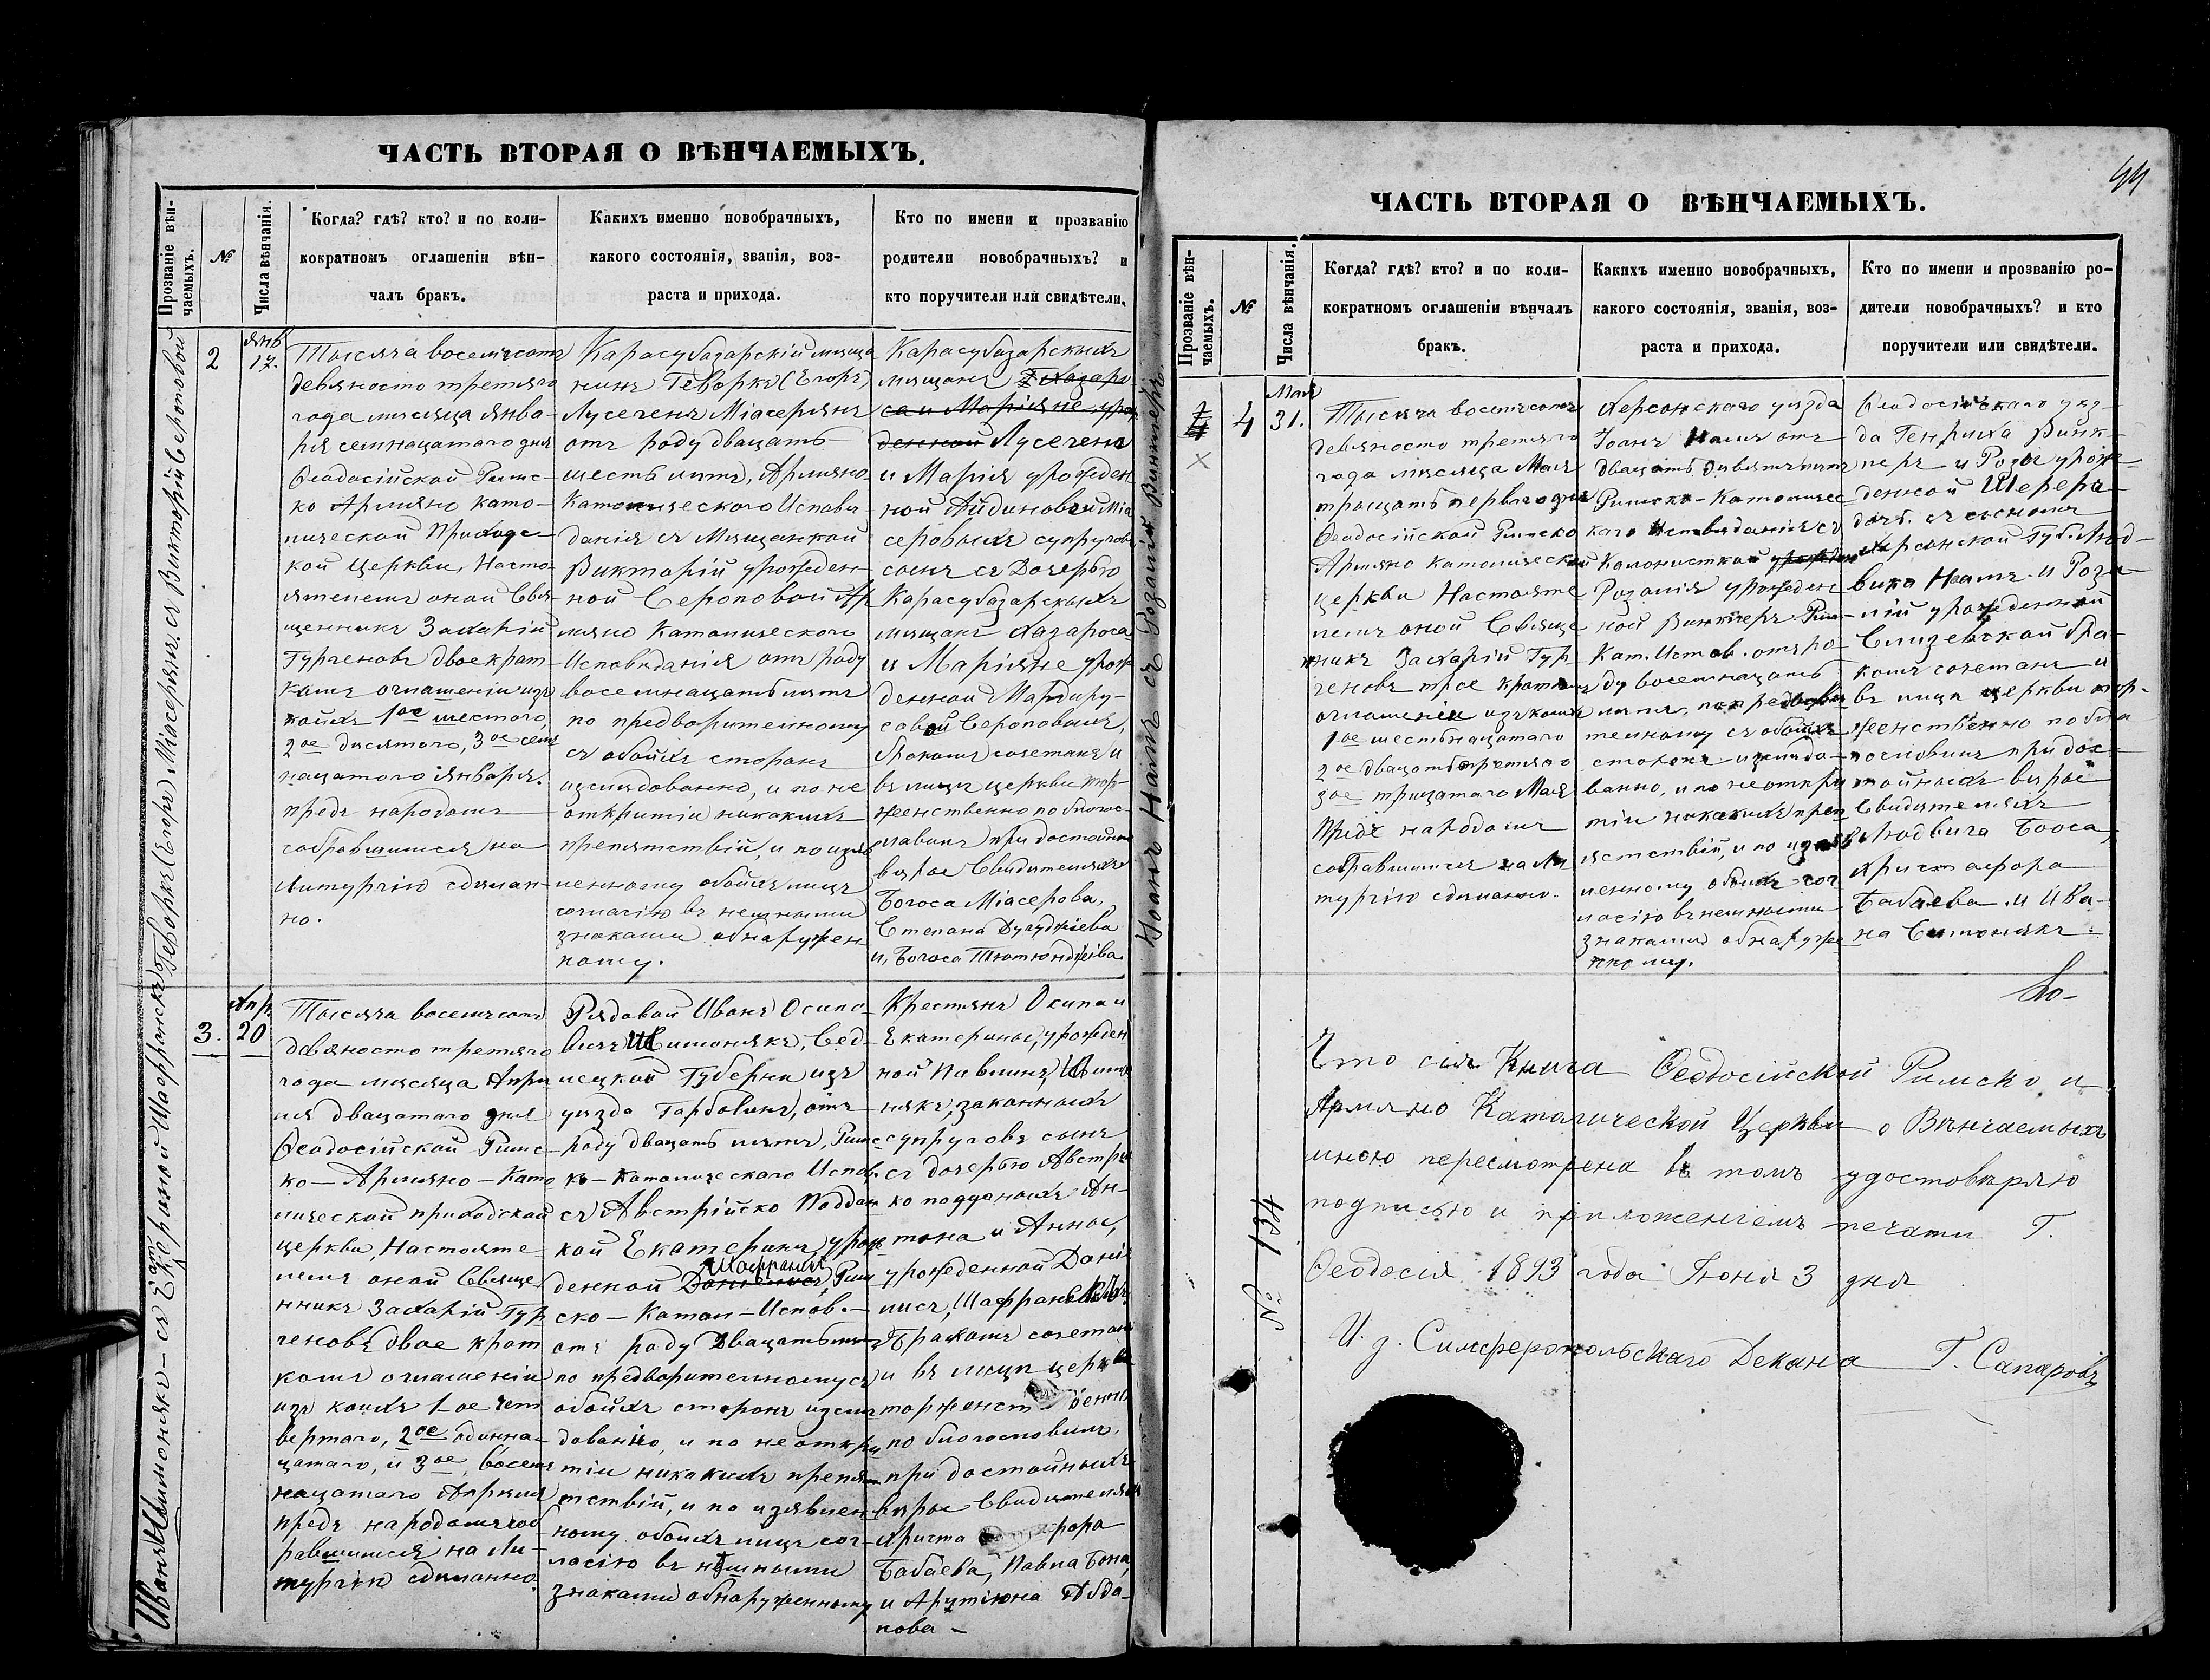 ЧАСТЬ ВТОРАЯ О ВѢНЧАЕМЫХЪ.
Прозваніе вѣн-
чаемыхъ.
№
Числа вѣнчанія.
Когда? гдѣ? кто? и по коли-
кократномъ оглашеніи вѣн-
чалъ бракъ.
Какихъ именно новобрачныхъ,
какого состоянія, званія, воз-
раста и прихода.
Кто по имени и прозванію
родители новобрачныхъ? и
кто поручители или свидѣтели.
Геворкъ (Егоръ) Міасерянъ съ Викторій Сероповой
2
Янв
17.
Тысяча восемьсотъ
девяносто третяго
года мѣсяца Янва-
ря семнацатаго дня
Ѳеодосійской Римс-
ко Армяно като-
лической Приходс-
кой Церкви, Насто-
ятелемъ оной Свя-
щенникъ Захарій
Турченовъ двое крат-
комъ оглашеніи изъ
коихъ 1ое шестого,
2ое дисятого, 3ое сем
нацатого Января.
предъ народомъ
собравшимся на
Литургію сдѣлан-
но.
Карасубазарскій мѣща
нинъ Геворкъ (Егоръ)
Лусегенъ Міасерянъ
отъ роду двацать
шесть лѣтъ, Армяно-
Католического Исповѣ-
данія съ Мѣщанкой
Викторій урожден-
ной Сероповой Ар
мяно Католического
Исповѣданія отъ роду
восемнацать лѣтъ
по предворителному
съ обоихъ сторонъ
изслѣдованно, и по не
откритіи никакихъ
препятствій, и по изяв
ленному обоихъ лицъ
согласію внешными
знаками обнаружен
ному.
Карасубазарскихъ
мѣщанъ
Лусегена
и Марія урожден
ной Айдиновой Міа
серовыхъ супругов
сынъ съ Дочерью
Карасубазарскихъ
мѣщанъ Хазароса
и Маріяне урож
денной Мардиру-
совой Сероповымъ,
бракомъ сочетанъ и
въ лицѣ церкви тор-
жественно поблагос-
ловилъ при достойныхъ
вѣрое Свидителяхъ
Богоса Міасерова,
Степана Дугуджіева
и, Богоса Тютюнджіева
Иванъ Шимонякъ — съ Екатериной Шаффранекъ
3.
Апр.
20
Тысяча восемьсотъ
девяносто третяго
года мѣсяца Апри
ля двацатого дня
Ѳеодосійской Римс-
ко — Армяно — Като
лической приходской
церкви, Настояте
лемъ оной Свяще-
нникъ Захарій Тур
ченовъ двое крат
комъ оглашеніи
изъ коихъ 1ое чет
вертаго, 2ое одинна-
цатаго, и 3ое, восем
нацатаго Апрѣля
предъ народомъ соб
равшимся на Ли-
тургію сдѣланно.
Рядовой Иванъ Осипо
вичъ Шимонякъ, Сед-
лецкой Губерни изъ
уѣзда Гарволинъ, отъ
роду двацать лѣтъ, Римс
ко — Католического Испов.
съ Австрійско Поддан
кой Екатерины урож
денной Шафранекъ Рим
ско — Катол — Испов. —
отъ роду Двацать лѣтъ
по предворителному съ
обоихъ сторонъ изслѣ
дованно, и по не откри
тіи никакихъ препя-
тствій, и по изявлен-
ному обоихъ лицъ сог-
ласію внешными
знаками обнаруженному
Крестянъ Осипа и
Екатерины, урожден
ной Павлинъ, Шимо
някъ, законныхъ
супруговъ сынъ
съ дочерью Австрій
ко подданыхъ Ан-
тона и Анны,
урожденной Даніе
лисъ, Шафранекъ
Бракомъ сочетанъ
и въ лицѣ церкви
торжественно
по благословилъ,
при достойныхъ
вѣрое Свидителяхъ
Христафора
Бабаева, Павла Бона,
и Арутіюна Абда-
лова —
44
ЧАСТЬ ВТОРАЯ О ВѢНЧАЕМЫХЪ.
Прозваніе вѣн-
чаемыхъ.
№
Числа вѣнчанія.
Когда? гдѣ? кто? и по коли-
кократномъ оглашеніи вѣнчалъ
бракъ.
Какихъ именно новобрачныхъ,
какого состоянія, званія, воз-
раста и прихода.
Кто по имени и прозванію ро-
дители новобрачныхъ? и кто
поручители или свидѣтели.
Іоанъ Наглъ съ Розалій Винклеръ
4
Мая
31.
Тысяча восемьсотъ
девяносто третяго
года мѣсяца Мая
трицать перваго дня
Ѳеодосійской Римско
Армяно католической
церкви Настояте
лемъ оной Свяще
никъ Захарій Тур
ченовъ трое кратномъ
оглашеніи изъ коихъ
1ое шестнацатаго
2ое двацать третяго
3ое трицатаго Мая
предъ народомъ
собравшимся на Ли
тургію сдѣланно.
Херсонского уѣзда
Іоанъ Наглъ отъ
двацать дивять лѣтъ
Римско-Католичес
каго Исповѣданія съ
Колонисткой
Розалія урожден
ной Винклеръ Рим
Кат. Испов. отъ ро
ду восемнацать
лѣтъ, по предвори
телному съ обоихъ
сторонъ изслѣдо-
ванно, и по неоткри
тіи никакихъ преп
ятствій, и по изяв
ленному обоихъ сог
ласію внешными
знаками обнаруже
нному.
Ѳеодосійскаго уѣз-
да Генриха Винк-
леръ и Розы урож-
денной Шерерь
дочъ. съ сыномъ
Херсонской Губ. Люд-
вика Наглъ и Роза
лій урожденной
бра-
комъ сочетанъ и
въ лицѣ церкви тор-
жественно побла
гословилъ при дос-
тойныхъ вѣрое
Свидителяхъ
Людвига Бооса,
Христафора
Бабаева и Ива-
на Симонякъ.
№ 134
Что сія Книга Ѳеодосійской Римско и
Армяно Католической Церкви о Вѣнчаемыхъ
мною пересмотрена въ томъ удостовѣряю
подписью и приложеніемъ печати Г.
Ѳеодосія 1893 года Іюня 3 дня
И. д. Симферопольскаго Декана Г. Сапаровъ